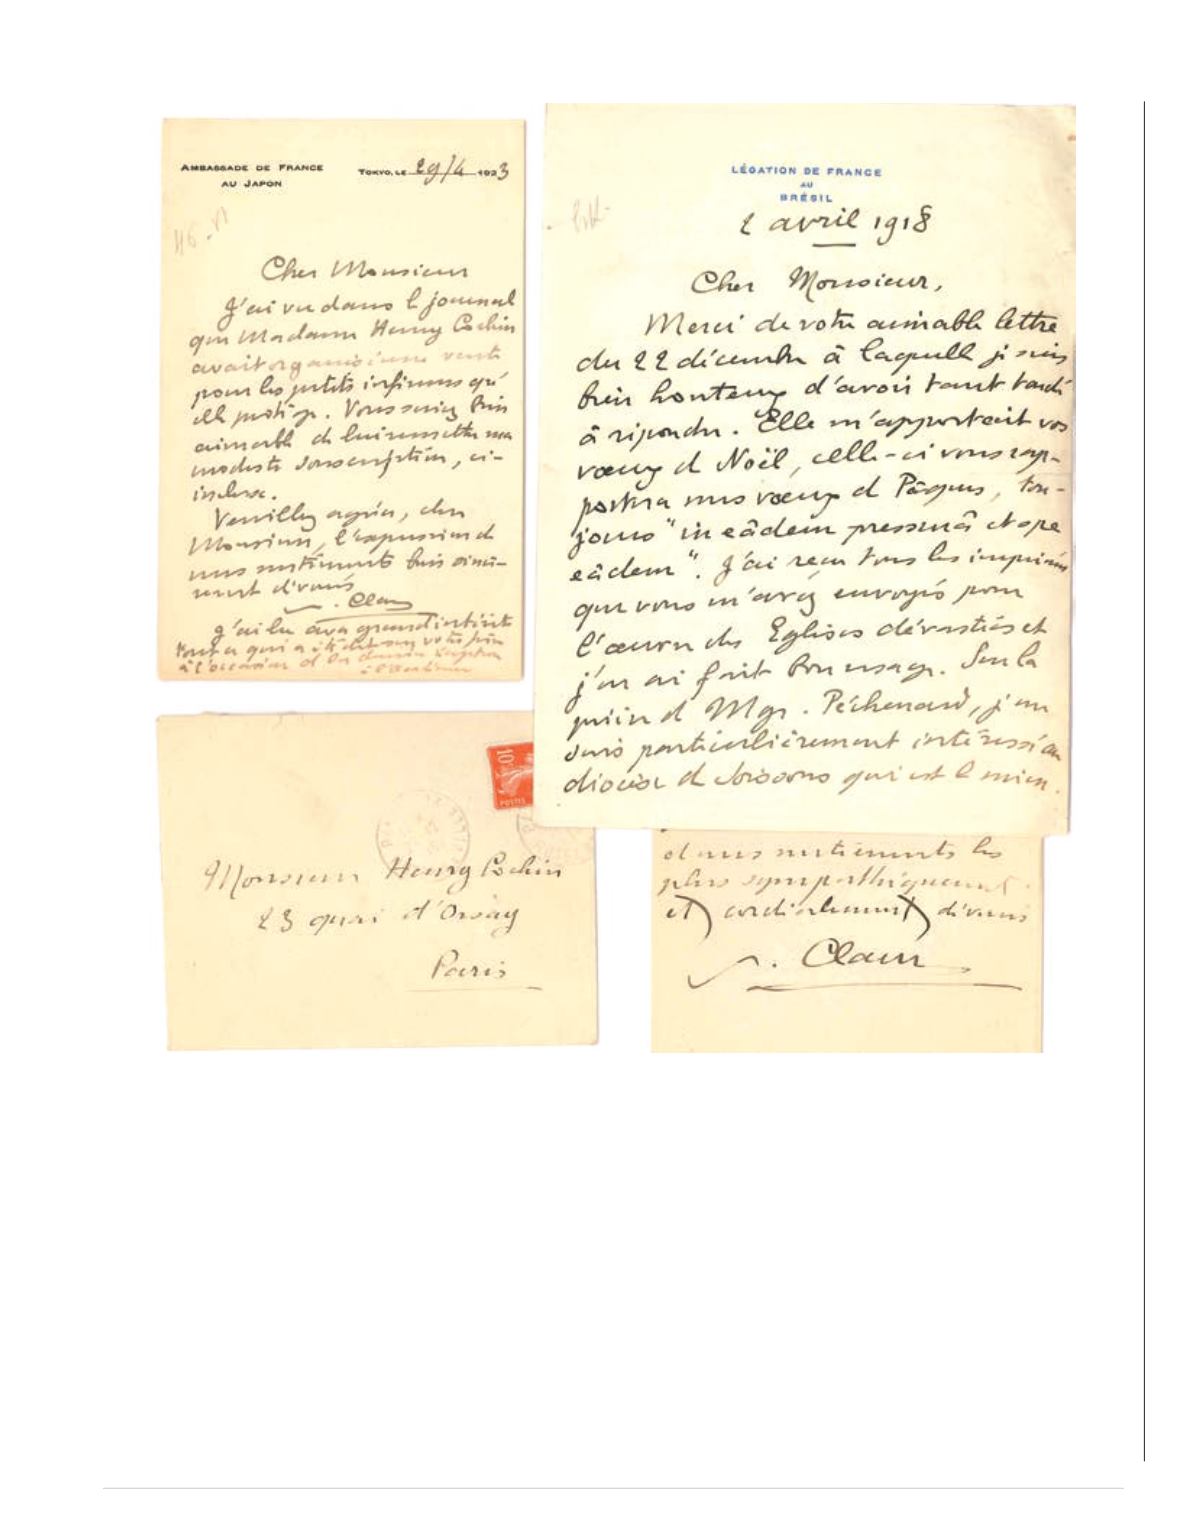 AMBASSADE DE FRANCE
AU JAPON
TOKYO, LE 29/4 1923
Cher Monsieur
J'ai vu dans le journal
que Madame Henry Cochin
avait organisé une vente
pour les petits infirmes qu'
elle protège. Vous seriez bien
aimable de lui remettre ma
modeste souscription, ci-
incluse.
Veuillez agréer, cher
Monsieur, l'expression de
mes sentiments bien sincè-
rement dévoués
Claudel
J'ai lu avec grand intérêt
tout ce qui a été dit sur votre père
à l'occasion de la
LÉGATION DE FRANCE
AU
BRÉSIL
2 avril 1918
Cher Monsieur,
Merci de votre aimable lettre
du 22 décembre à laquelle je suis
bien honteux d'avoir tant tardé
à répondre. Elle m'apportait vos
vœux de Noël, celle-ci vous rap-
portera mes vœux de Pâques, tou-
jours "in eâdem pressurâ et spe
eâdem". J'ai reçu tous les imprimés
que vous m'avez envoyés pour
l'œuvre des Eglises dévastées et
j'en ai fait bon usage. Sur la
prière de Mgr. Péchenard, je me
suis particulièrement intéressé au
diocèse de Soissons qui est le mien.
10c
POSTES
Monsieur Henry Cochin
23 quai d'Orsay
Paris
de mes sentiments les
plus sympathiquement
et cordialement dévoués
Claudel